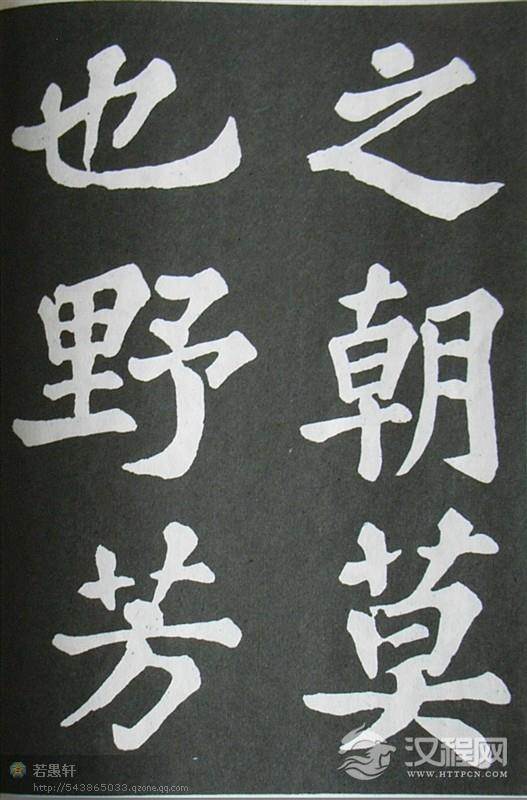 之朝莫
也野芳
若愚轩
http://543865033.qzone.qq.com
汉程网
WWW.HTTPCN.COM